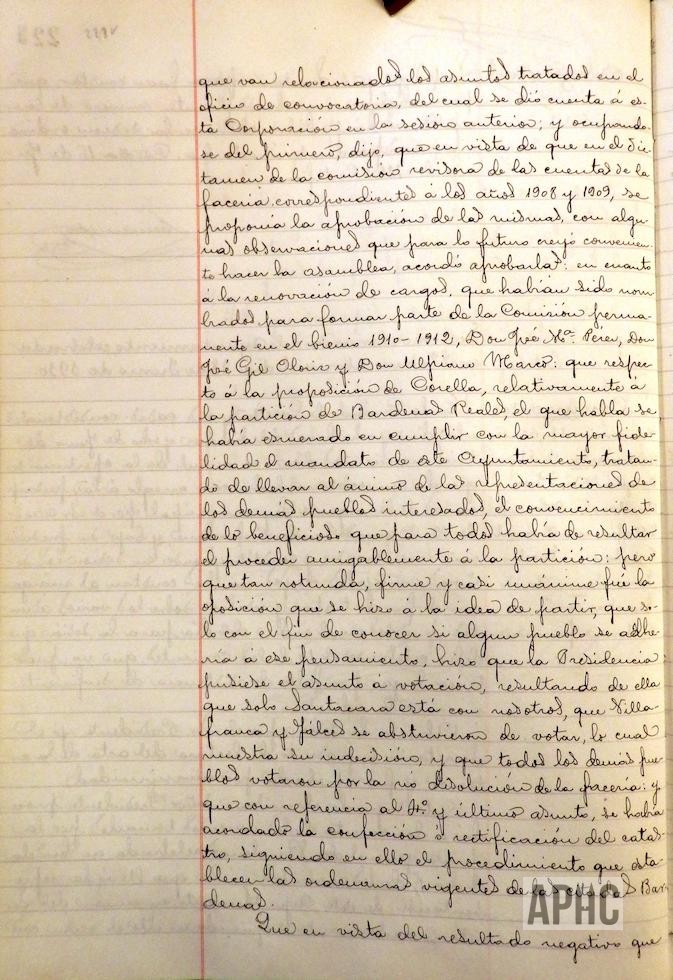 que van relacionados los asuntos tratados en el
oficio de convocatoria, del cual se dió cuenta á es-
ta Corporación en la sesión anterior; y ocupando-
se del primero, dijo, que en vista de que en el dic-
tamen de la comisión revisora de las cuentas de la
facería, correspondientes á los años 1908 y 1909, se
proponía la aprobación de las mismas, con algu-
nas observaciones que para lo futuro creyó convenien-
te hacer la asamblea, acordó aprobarlas: en cuanto
á la renovación de cargos, que habían sido nom-
brados para formar parte de la Comisión perma-
nente en el bienio 1910-1912, Don José Mª. Pérez, Don
José Gil Oloriz y Don Ulpiano Marco: que respec-
to á la proposición de Corella, relativamente á
la partición de Bardenas Reales, el que habla se
había esmerado en cumplir con la mayor fide-
lidad el mandato de este Ayuntamiento, tratan-
do de llevar al ánimo de las representaciones de
los demás pueblos interesados, el convencimiento
de lo beneficioso que para todos había de resultar
el proceder amigablemente á la partición: pero
que tan rotunda, firme y casi unánime fué la
oposición que se hizo á la idea de partir, que so-
lo con el fin de conocer si algun pueblo se adhe-
ría á ese pensamiento, hizo que la Presidencia
pusiese el asunto á votación, resultando de ella
que solo Santacara está con nosotros, que Villa-
franca y Falces se abstuvieron de votar, lo cual
muestra su indecisión, y que todos los demás pue-
blos votaron por la no disolución de la facería: y
que con referencia al 4º. y último asunto, se había
acordado la confección ó rectificación del catas-
tro, siguiendo en ello el procedimiento que esta-
blecen las ordenanzas vigentes de las citadas Bar-
denas.
Que en vista del resultado negativo que
APHC